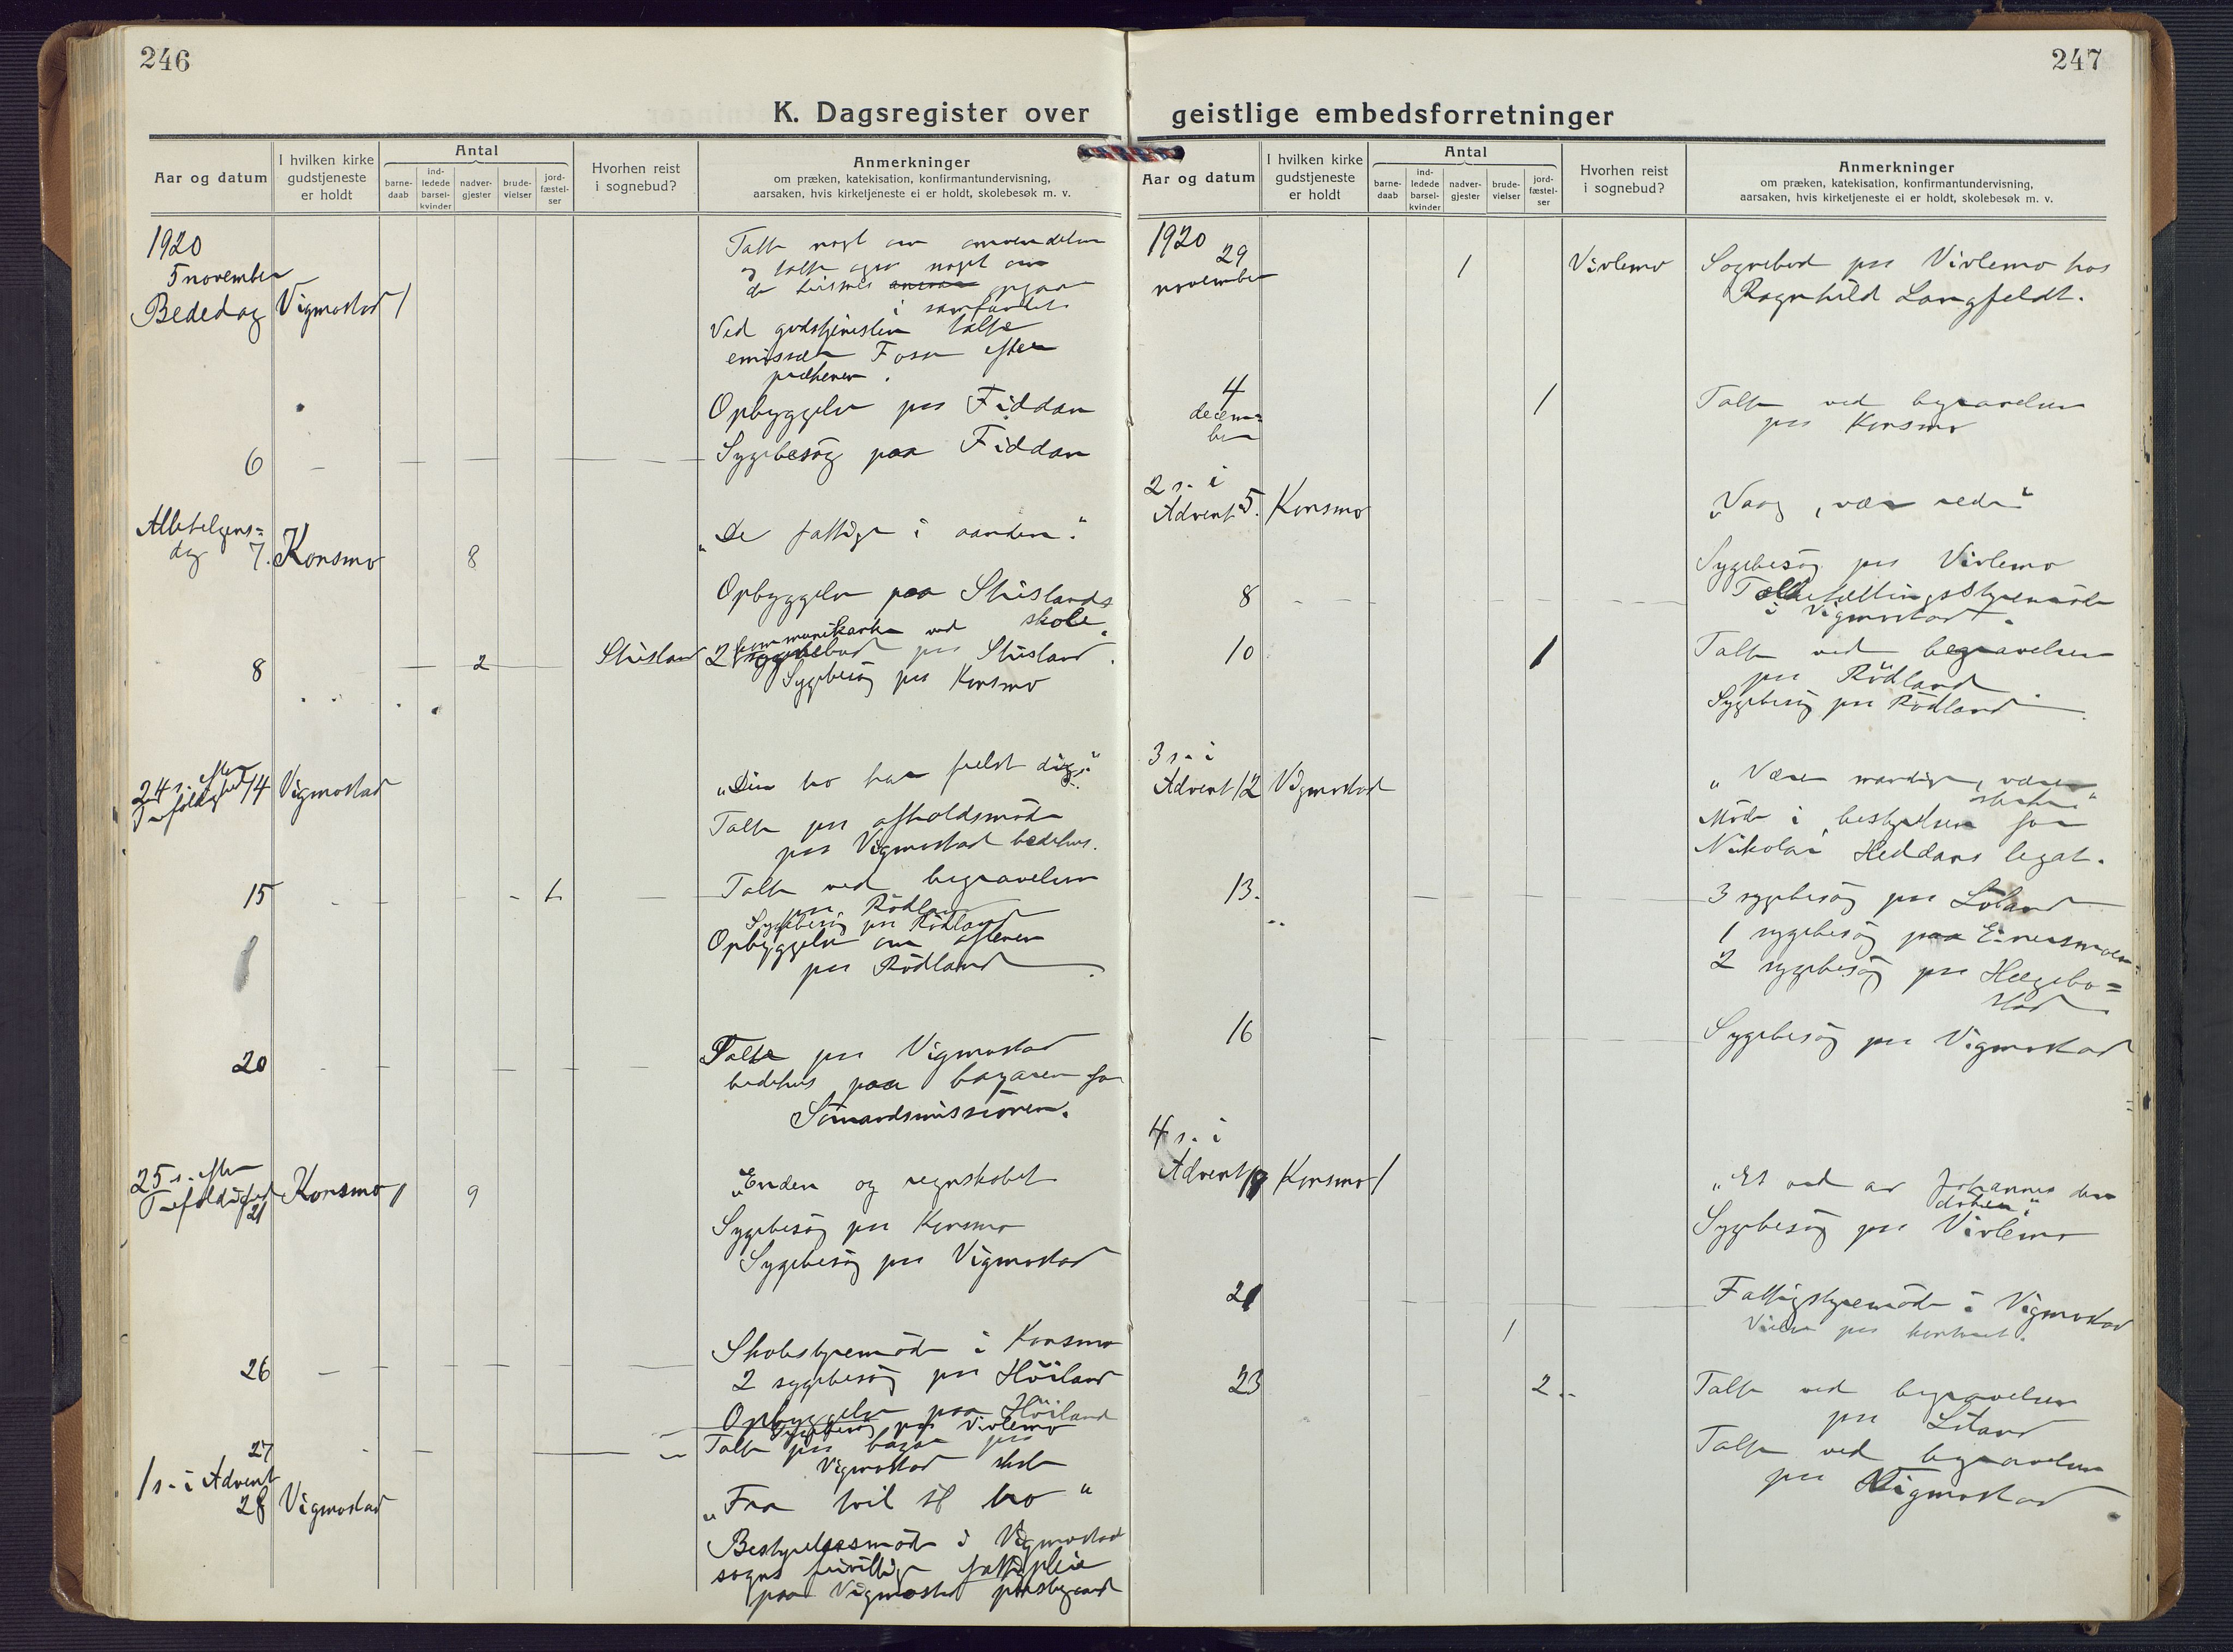 246
K. Dagsregister over
Aar og datum
I hvilken kirke
gudstjeneste
er holdt
Antal
barne-
daab
ind-
ledede
barsel-
kvinder
nadver-
gjester
brude-
vielser
jord-
fæstel-
ser
Hvorhen reist
i sognebud?
Anmerkninger
om præken, katekisation, konfirmantundervisning,
aarsaken, hvis kirketjeneste ei er holdt, skolebesøk m. v.
1920
5 november
Bededag Vigmostad 1
Talte noget om omvendelsen
og talte ogsaa noget om
i samfundet
Ved gudstjenesten talte
emissær Foss efter
prækenen.
Opbyggelse paa Fiddan
6
Sygebesög paa Fiddan
Allehelgens=
dag 7. Konsmo 8
"De fattige i aanden."
Opbyggelse paa Stuslands
skole.
8 2 Stusland
2 kommunikanter ved
sognebud paa Stusland.
Sygebesög paa Konsmo
24 s. efter
Trefoldighed 14 Vigmostad
"Din tro har frelst dig."
Talte paa afholdsmöde
paa Vigmostad bedehus.
15 1
Talte ved begravelsen
paa Rödland
Sygebesög paa Rödland
Opbyggelse om aftenen
paa Rödland
20
Talte paa Vigmostad
bedehus paa bazaren for
Sömandsmissionen.
25 s. efter
Trefoldighed
21 Konsmo 1 9
"Enden og regnskabet
Sygebesög paa Konsmo
Sygebesög paa Vigmostad
26
Skolestyremöde i Konsmo
2 sygebesög paa Höiland
Opbyggelse paa Höiland
Sygebesög paa Virlemo
27
Talte paa bazar paa
Vigmostad skole
1 s. i Advent
28 Vigmostad
"Fra tvil til tro"
Bestyrelsesmöde i Vigmostad
sogns frivillige fattigpleie
paa Vigmostad prestegaard
247
geistlige embedsforretninger
Aar og datum
I hvilken kirke
gudstjeneste
er holdt
Antal
barne-
daab
ind-
ledede
barsel-
kvinder
nadver-
gjester
brude-
vielser
jord-
fæstel-
ser
Hvorhen reist
i sognebud?
Anmerkninger
om præken, katekisation, konfirmantundervisning,
aarsaken, hvis kirketjeneste ei er holdt, skolebesøk m. v.
1920
29
november 1 Virlemo
Sognebud paa Virlemo hos
Ragnhild Langfeldt.
4
decem=
ber 1
Talte ved begravelsen
paa Konsmo
2 s. i
Advent 5. Konsmo
"Vaag, vær rede"
Sygebesög paa Virlemo
8
i Vigmostad.
10 1
Talte ved begravelsen
paa Rödland
Sygebesög paa Rödland
3 s. i
Advent 12 Vigmostad
"Værer mandige, værer
sterke"
Möte i bestyrelsen for
Nikolai Heddans legat.
13.
3 sygebesög paa Löland
1 sygebesög paa Eineresmoen
2 sygebesög paa Hægebo=
stad
16
Sygebesög paa Vigmostad
4 s. i
Advent 19 Konsmo 1
"Et ord av Johannes den
döber"
Sygebesög paa Virlemo
21
Fattigstyremöde i Vigmostad
1
Vielse paa kontoret.
23 2
Talte ved begravelsen
paa Löland
Talte ved begravelsen
paa Vigmostad